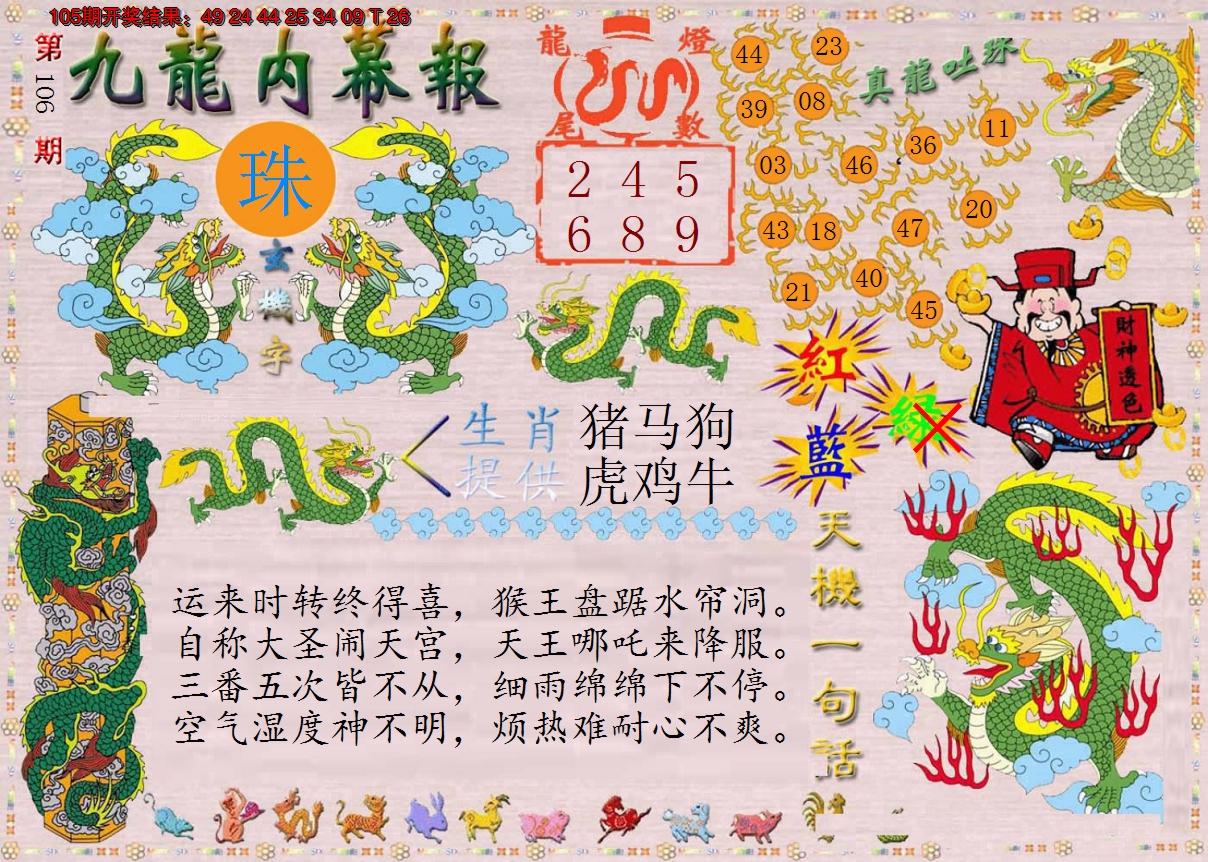 105期开奖结果：49 24 44 25 34 09 T 26
第106期
九龍内幕報
珠
玄機字
龍燈
尾數
2 4 5
6 8 9
真龍吐珠
44
23
39
08
11
36
03
46
20
43
18
47
40
21
45
紅
綠
藍
財神透色
生肖
提供
猪马狗
虎鸡牛
天機一句话
运来时转终得喜，猴王盘踞水帘洞。
自称大圣闹天宫，天王哪吒来降服。
三番五次皆不从，细雨绵绵下不停。
空气湿度神不明，烦热难耐心不爽。